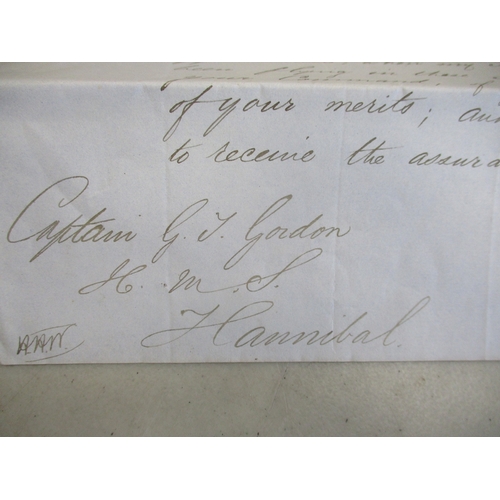 of your merits; and
to receive the assura
Captain G. T. Gordon
H. M. S.
Hannibal.